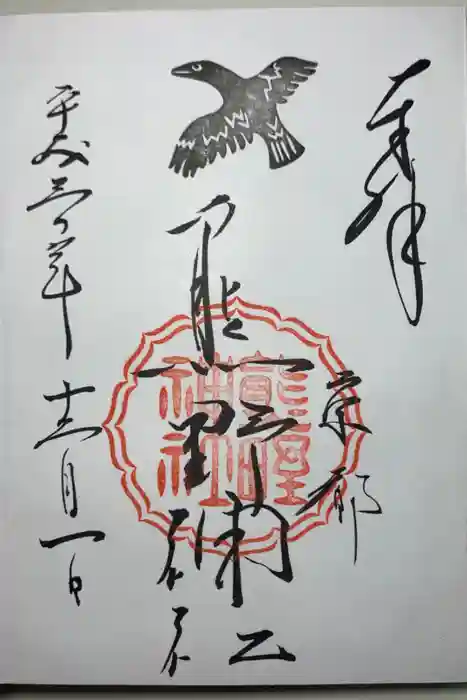 奉拝
京都
熊野神社
熊野
神社
平成三〇年十二月一日